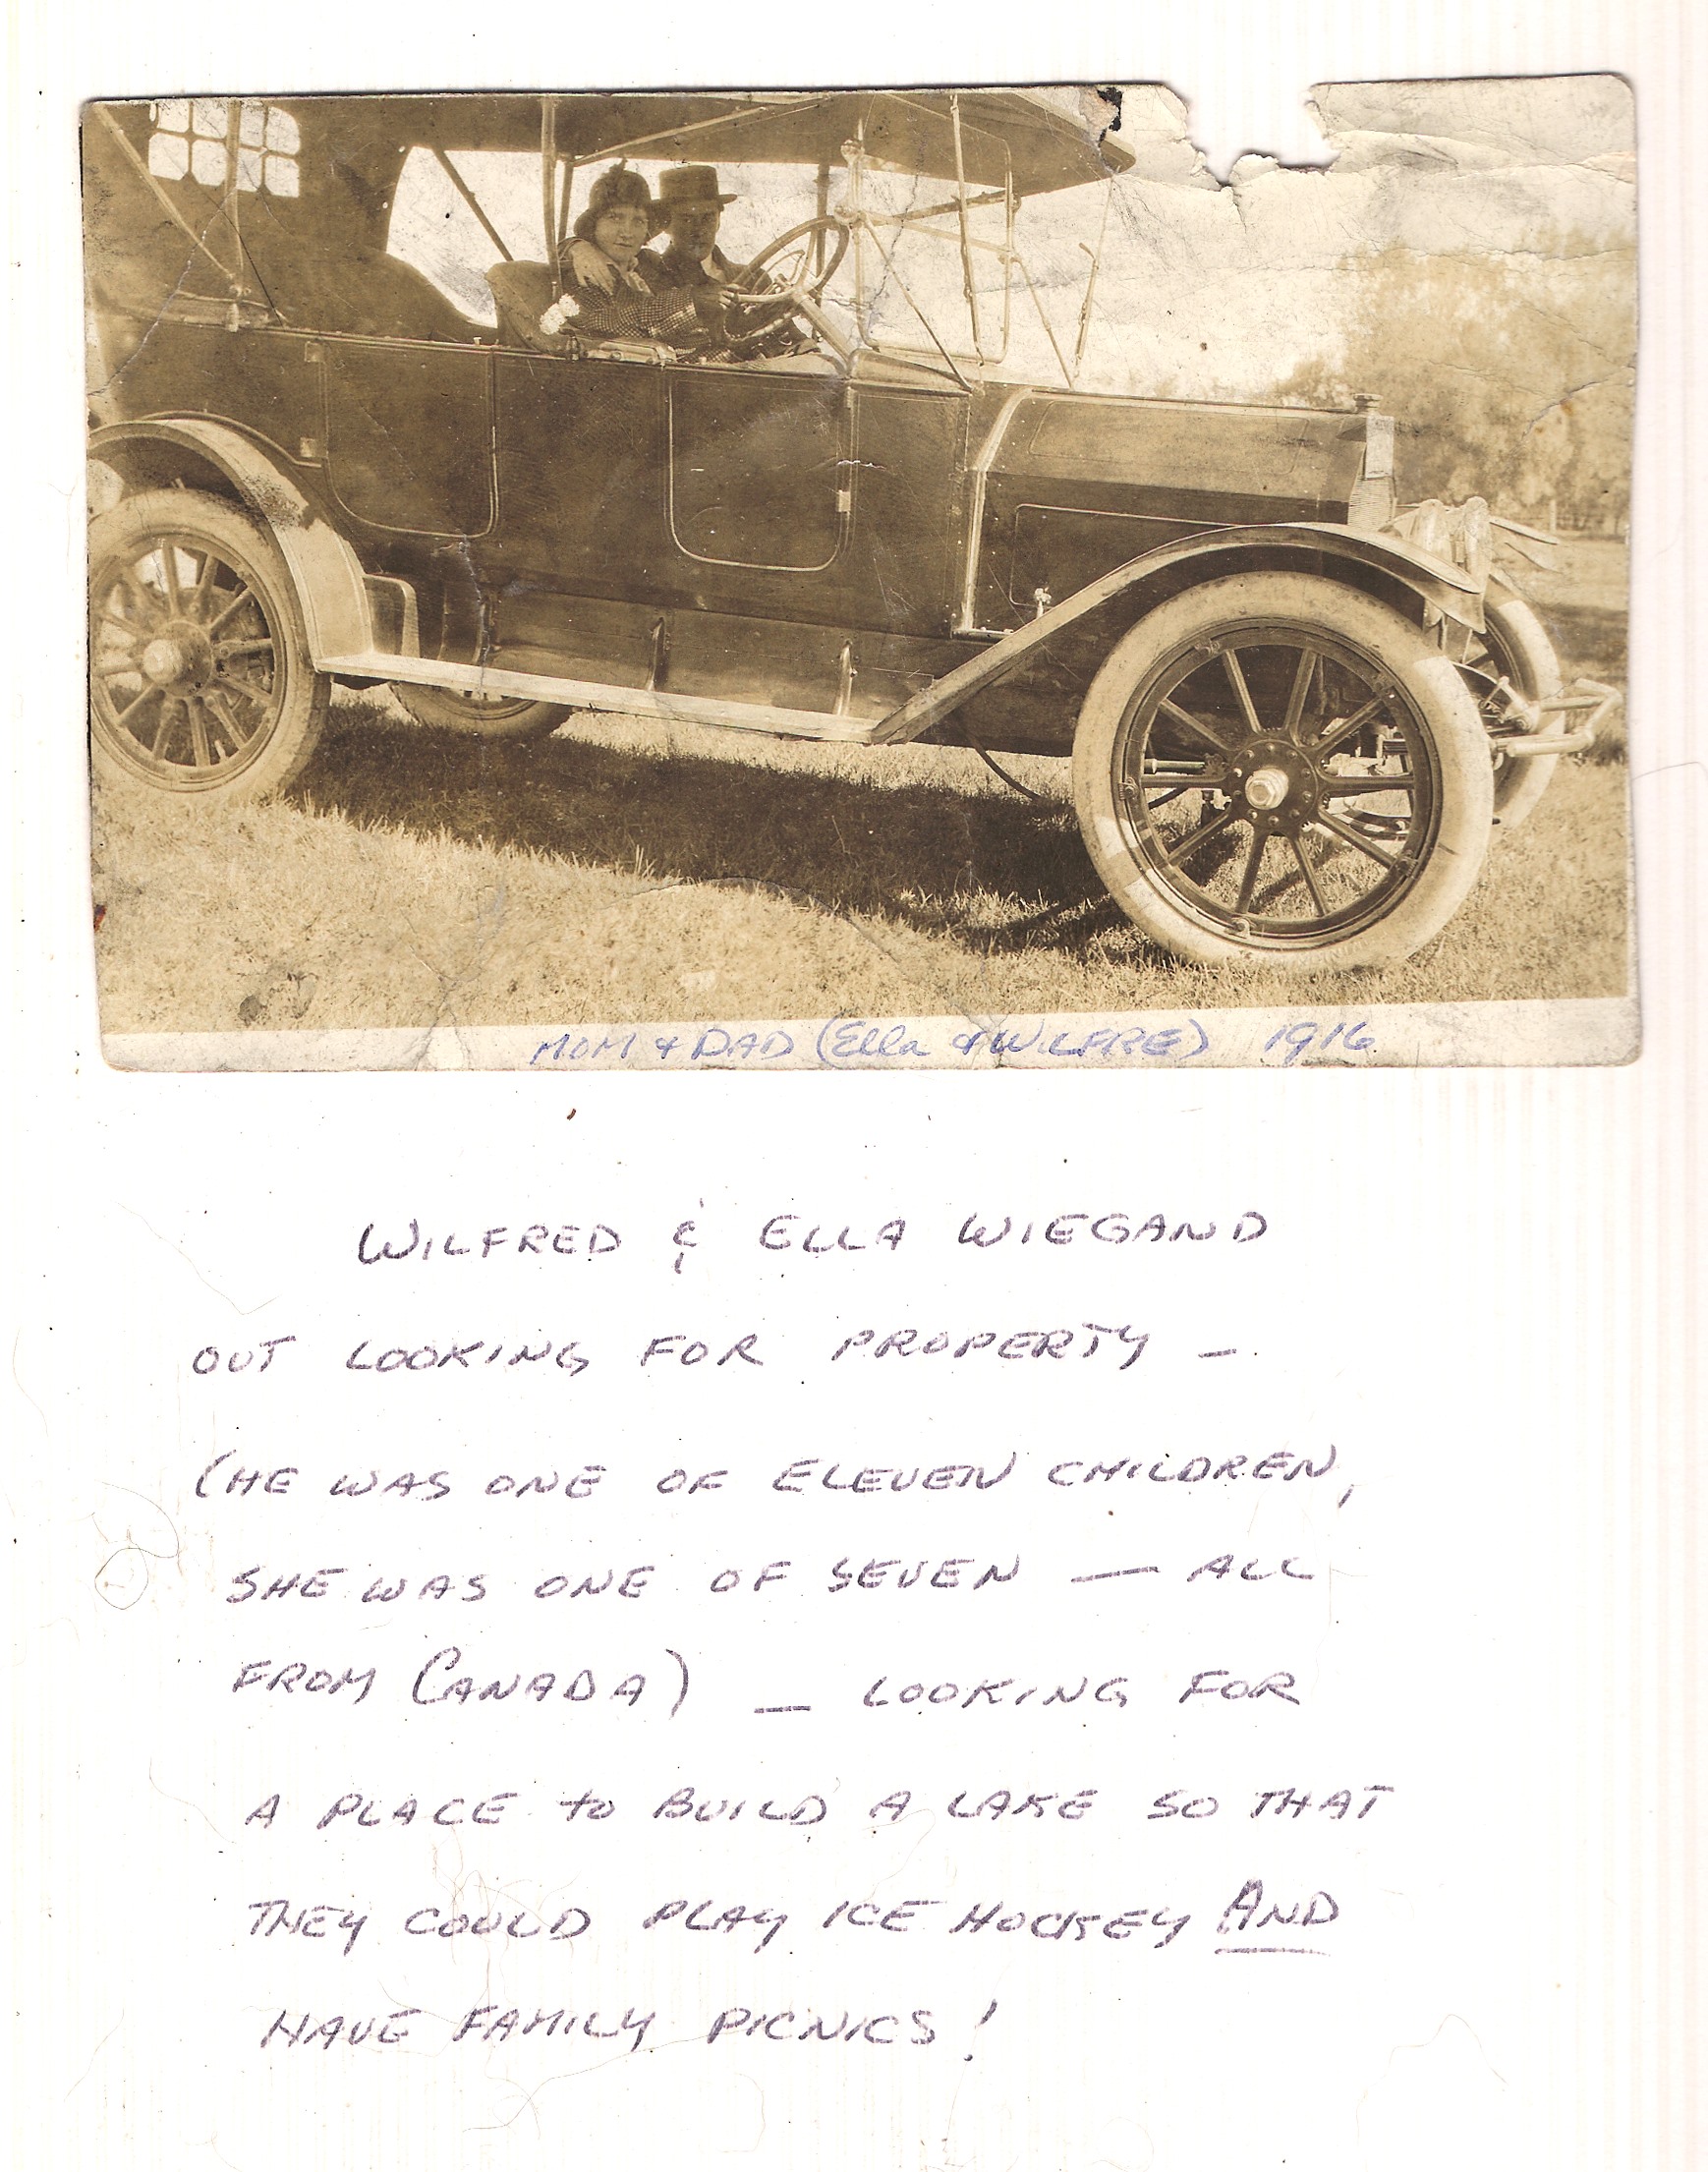 MOM & DAD (Ella & WILFRE) 1916
WILFRED & ELLA WIEGAND
OUT LOOKING FOR PROPERTY —
(HE WAS ONE OF ELEVEN CHILDREN,
SHE WAS ONE OF SEVEN — ALL
FROM CANADA) — LOOKING FOR
A PLACE to BUILD A LAKE SO THAT
THEY COULD PLAY ICE HOCKEY AND
HAVE FAMILY PICNICS!